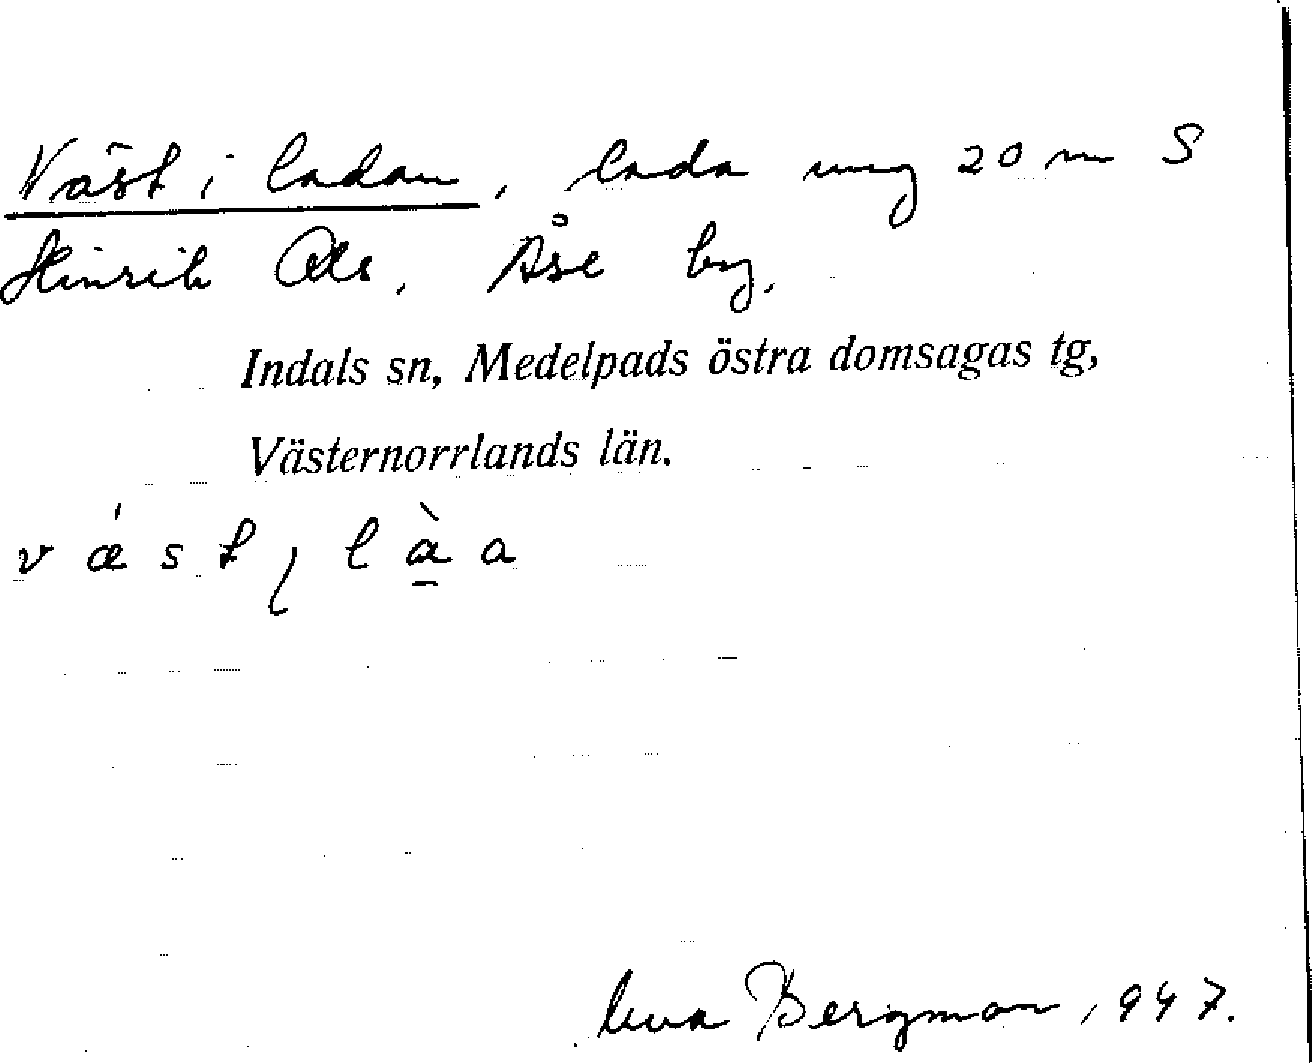 Väst i ladan, lada ung 20 m S
Hinrik Ols, Åse by.
Indals sn, Medelpads östra domsagas tg,
Västernorrlands län.
v ǽ s t ɩ l à̱ a
Bergman, 1947.